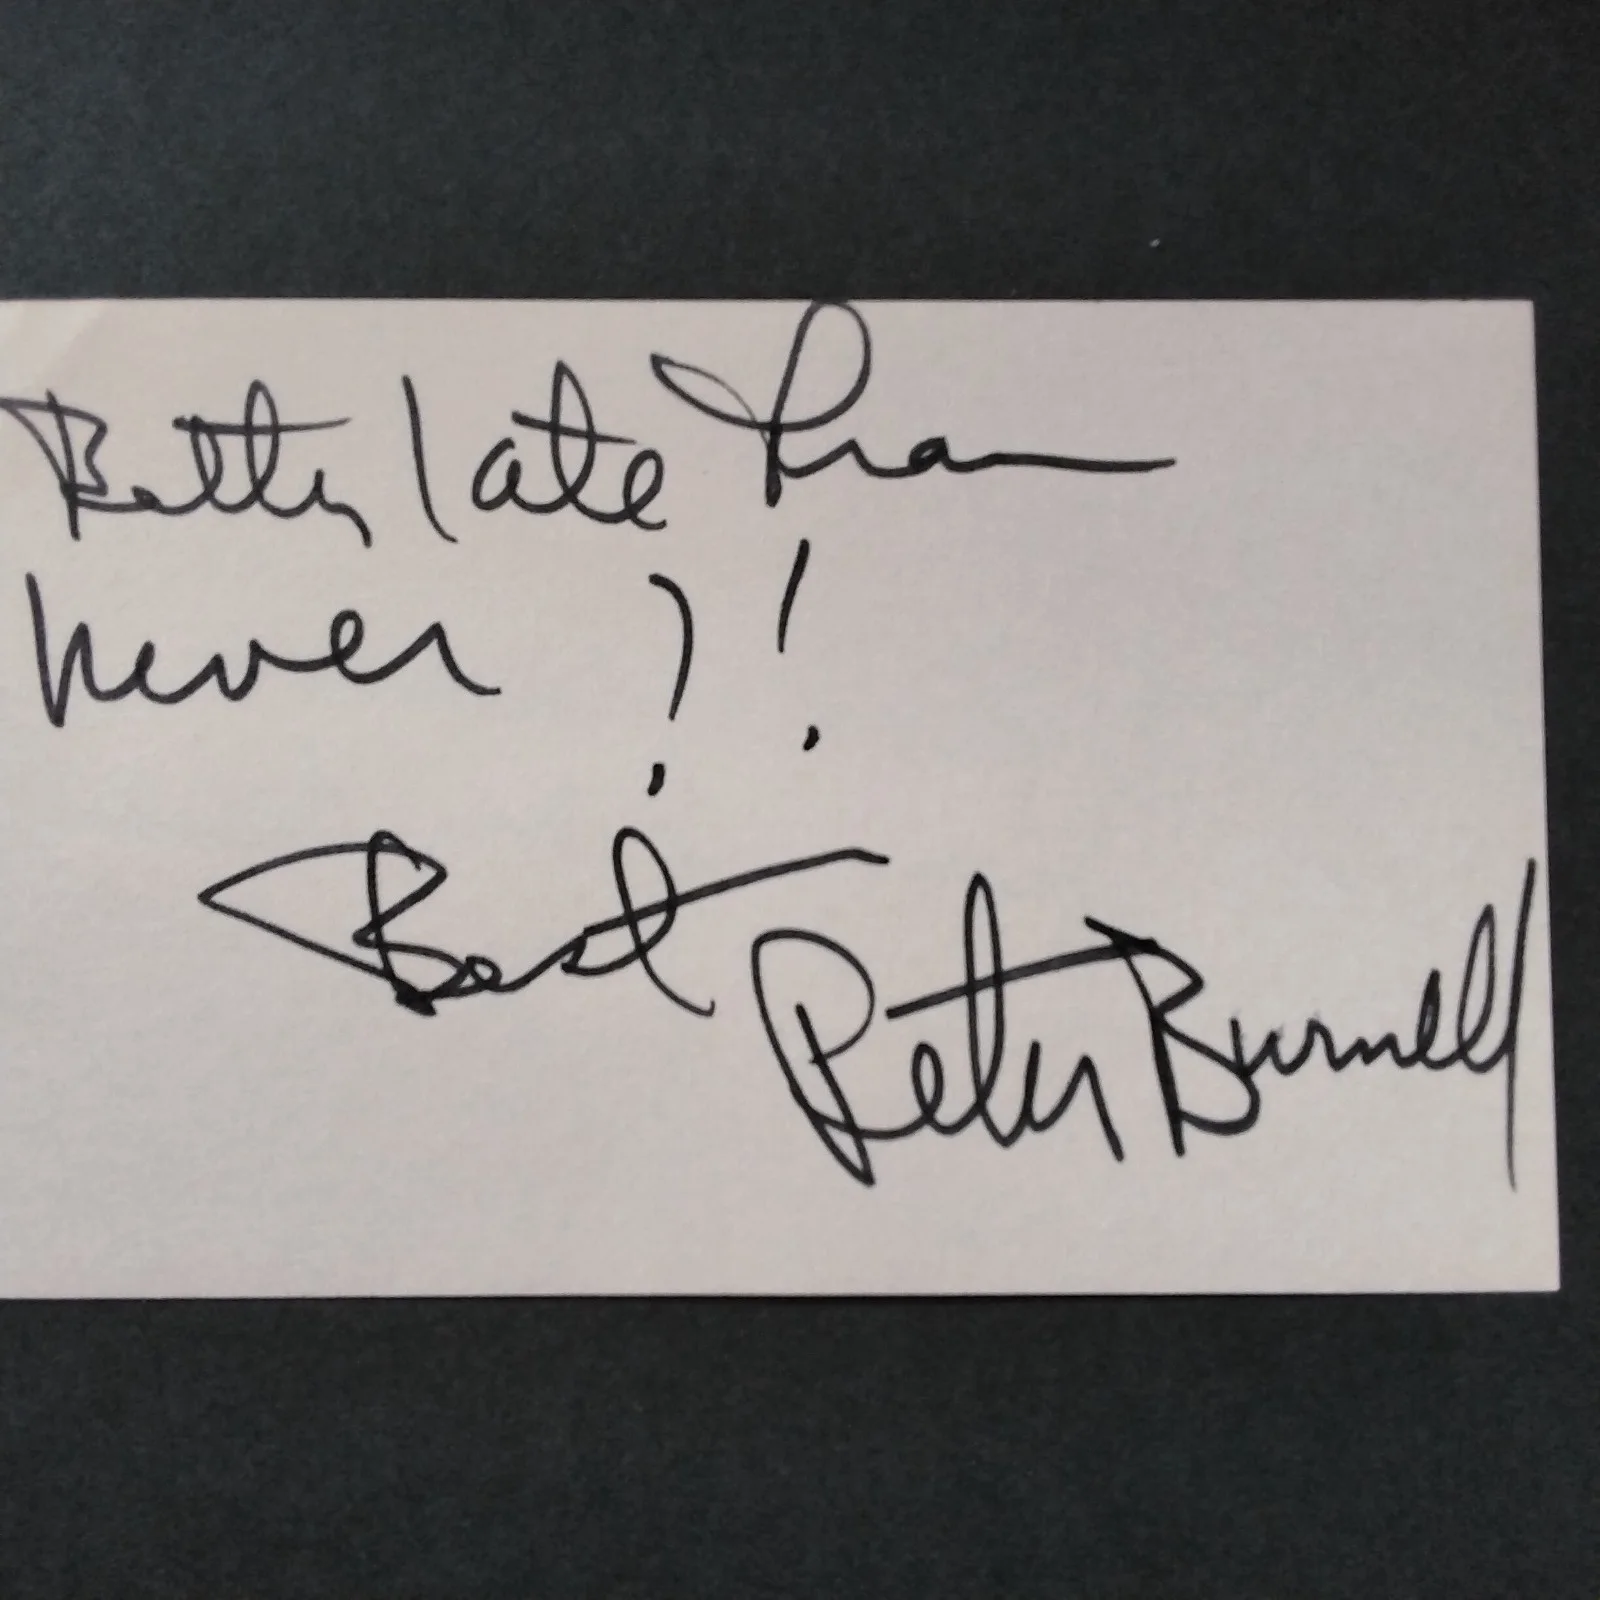 Better late than
never ?!
Best
Peter Burnell